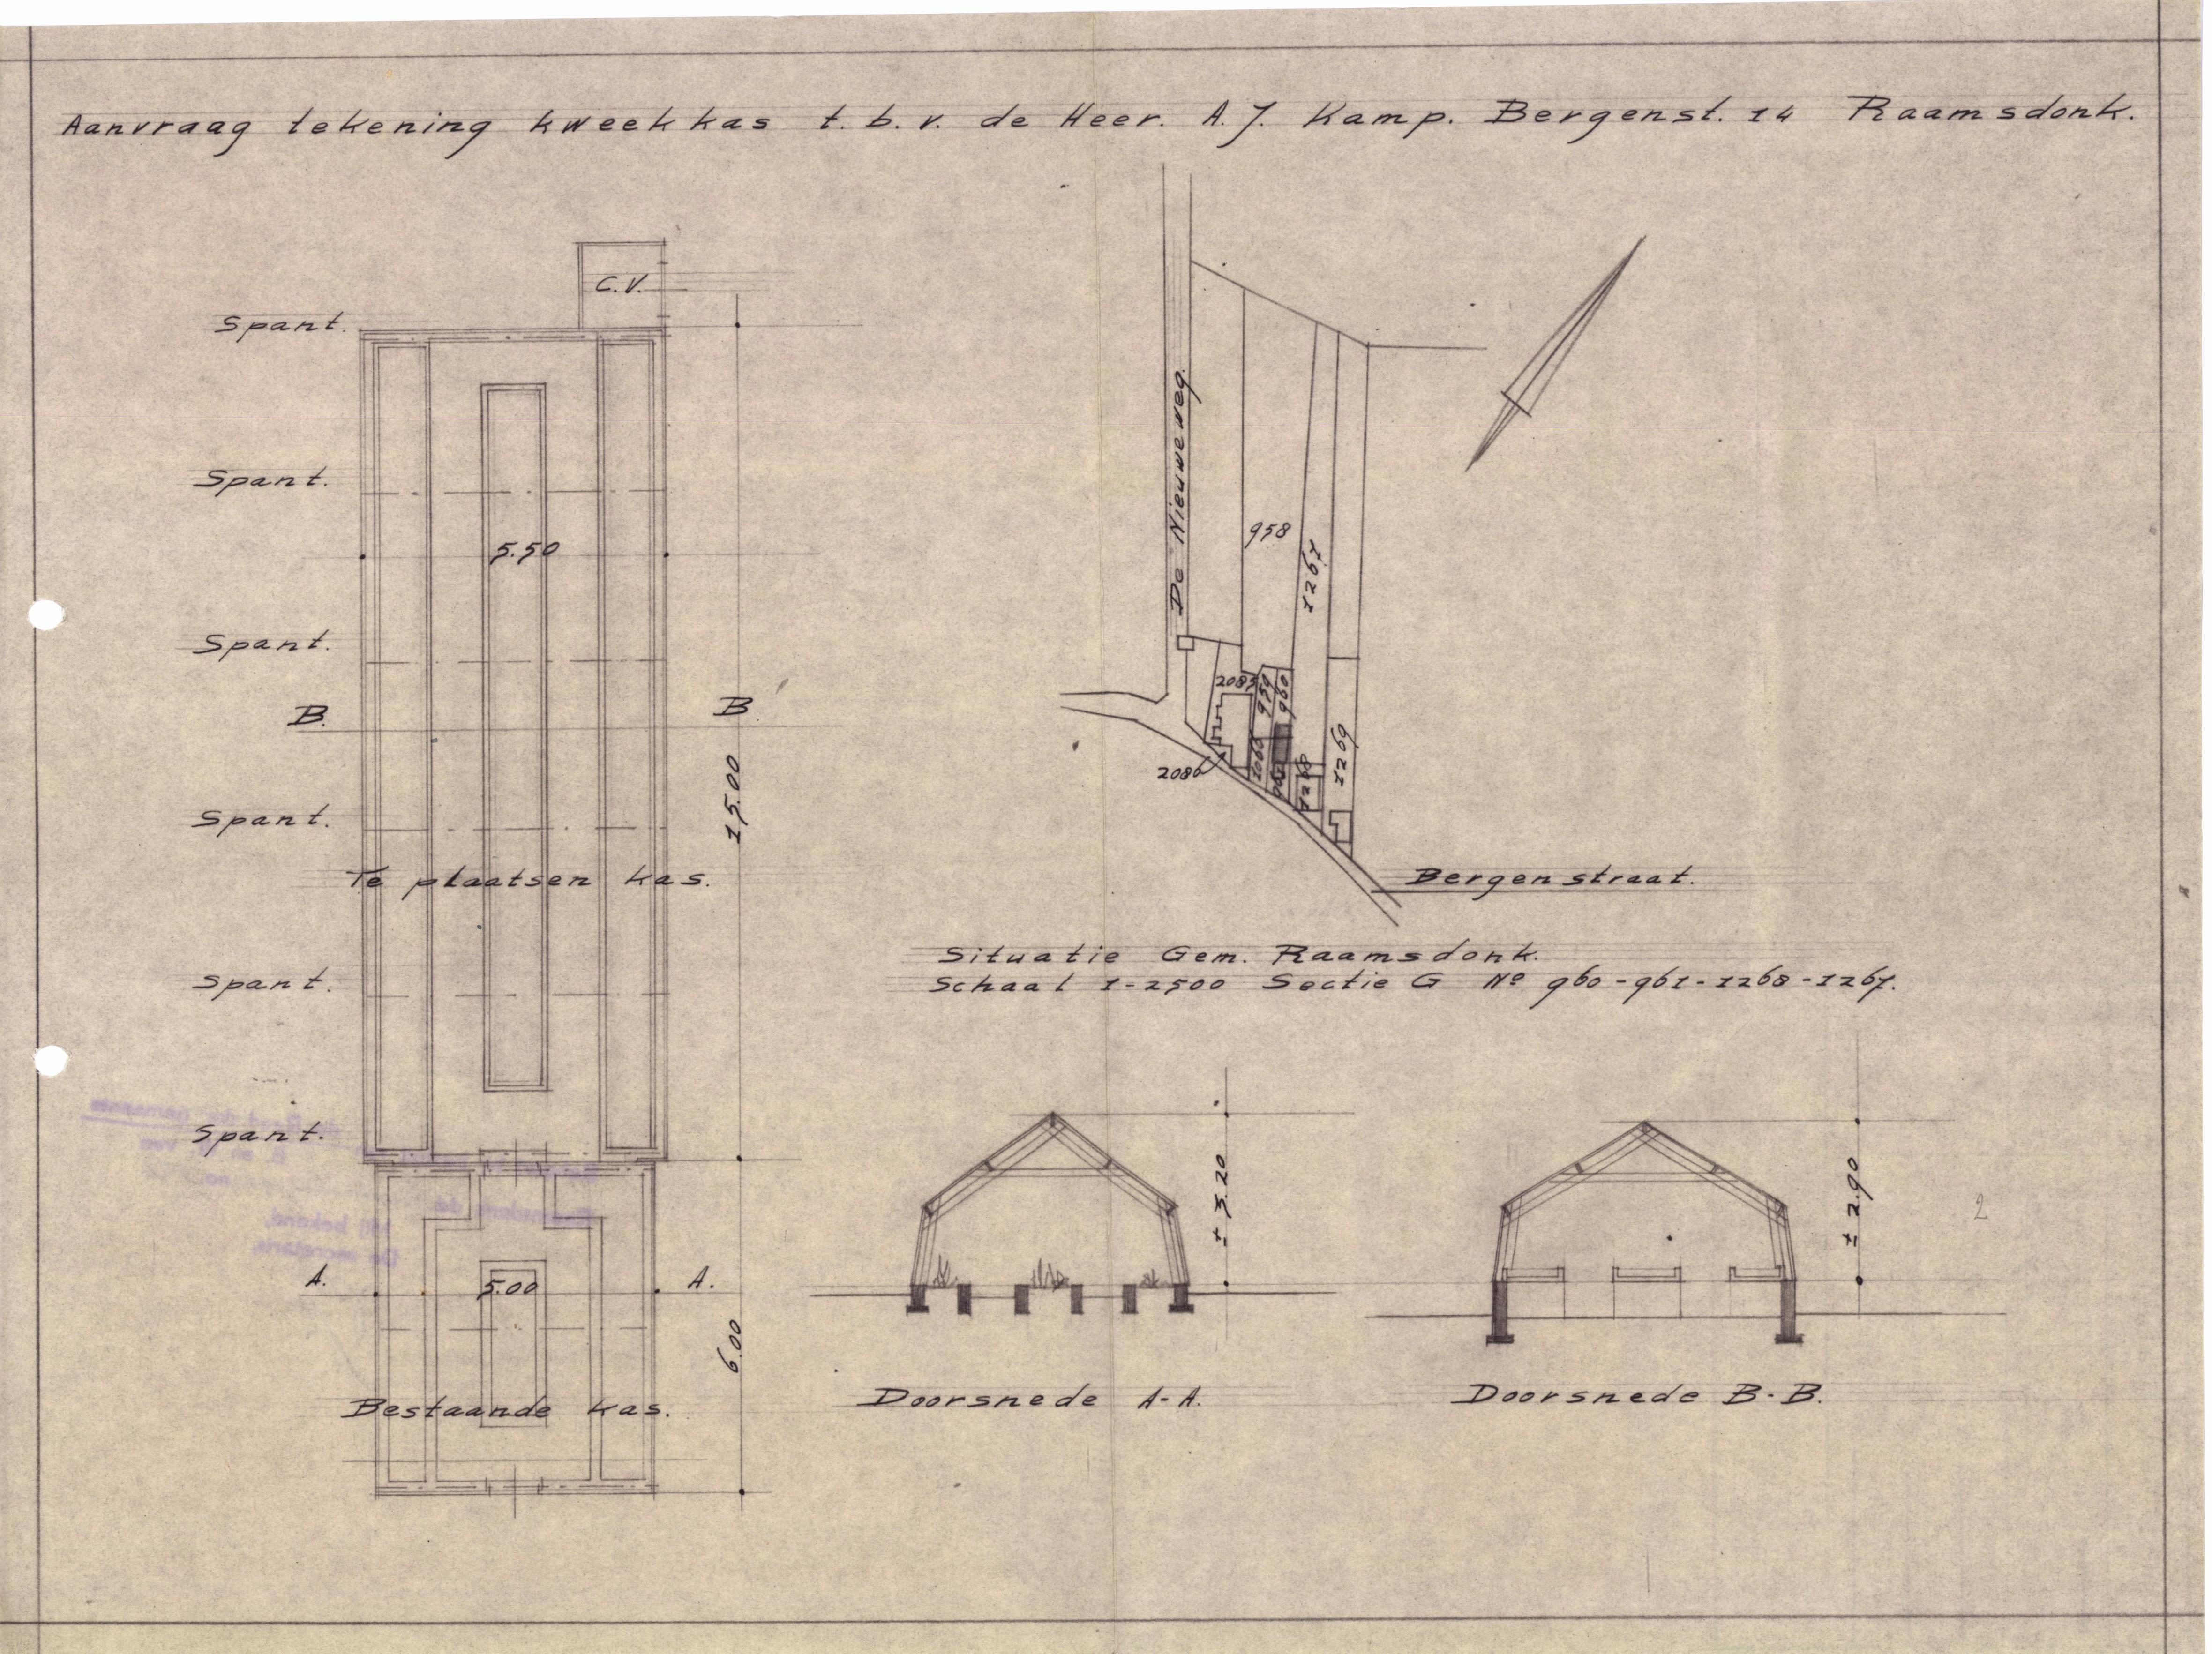 Aanvraag tekening kweekkas t.b.v. de Heer. A.J. Kamp. Bergenst. 14 Raamsdonk.
C.V.
Spant.
Spant.
5.50
Spant.
B. B
15.00
Spant.
Te plaatsen kas.
Spant.
Spant.
A. 5.00 A.
6.00
Bestaande kas.
De Nieuweweg.
958
1267
2085
959
960
2086
2066
961
1268
1269
Bergenstraat.
Situatie Gem. Raamsdonk.
Schaal 1-2500 Sectie G Nº 960-961-1268-1267.
± 3.20
Doorsnede A-A.
± 2.90
Doorsnede B-B.
2